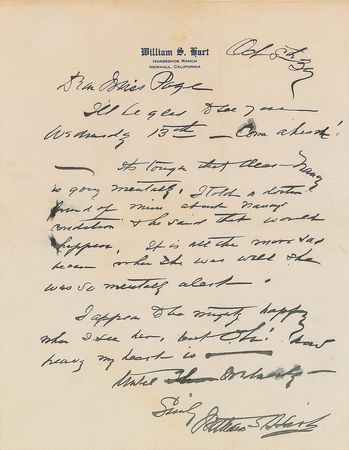 William S. Hart
HORSESHOE RANCH
NEWHALL, CALIFORNIA
Oct 8th 37
Dear Miss Page
I'll be glad to see you
Wednesday 13th — Come ahead!
— Its tough that dear Nancy
is going mentally. I told a doctor
friend of mine about Nancy's
condition & he said that would
happen. It is all the more sad
because when she was well she
was so mentally alert.
I appear to be mighty happy
when I see her, but Oh! how
heavy my heart is —
Until Wednesday —
Sincerely
William S Hart